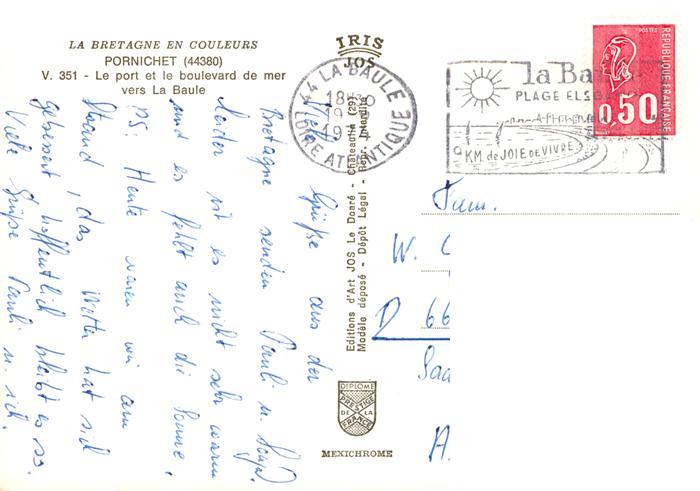 LA BRETAGNE EN COULEURS
PORNICHET (44380)
V. 351 - Le port et le boulevard de mer
vers La Baule
IRIS
JOS
44 LA BAULE
18H
19
1974
LOIRE ATLANTIQUE
la Baule
PLAGE
KM de JOIE DE VIVRE
POSTES
REPUBLIQUE FRANÇAISE
0,50
Grüße aus der
Bretagne senden Pauli u.
Leider ist es nicht sehr warm
und es fehlt auch die Sonne.
PS: Heute waren wir am
Strand, das Wetter hat sich
gebessert, hoffentlich bleibt es so.
Viele Grüße Pauli u. ich.
Editions d'Art JOS Le Doaré - Châteaulin (29)
Modèle déposé - Dépôt Légal - Repr. interdite
Fam.
W.
D 66
Saa
A.
DIPLOME
PRESTIGE
DE LA
FRANCE
MEXICHROME